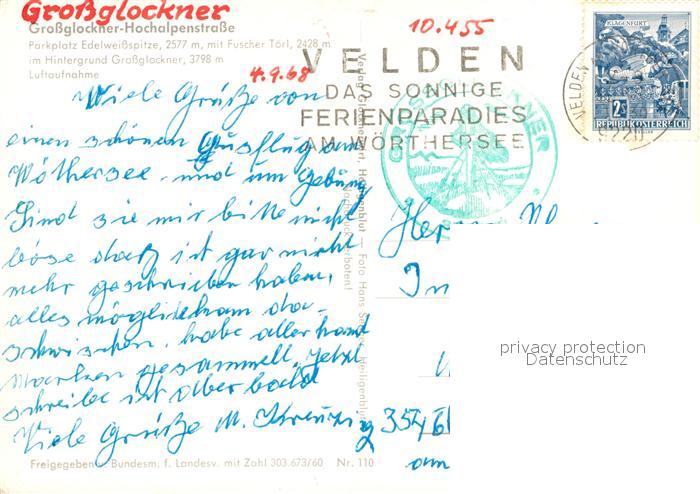 Großglockner
Großglockner-Hochalpenstraße
Parkplatz Edelweißspitze, 2577 m, mit Fuscher Törl, 2428 m
im Hintergrund Großglockner, 3798 m
Luftaufnahme
4.9.68
10.455
VELDEN
DAS SONNIGE
FERIENPARADIES
AM WÖRTHERSEE
KLAGENFURT
2S
REPUBLIK ÖSTERREICH
VELDEN
9220
Viele Grüße von
einen schönen Ausflug am
Wöthersee und im Gebüng
Sind sie mir bitte nicht
böse daß ich gar nicht
mehr geschrieben haben,
alles möglich kam da-
schwischen, habe allerhand
Marken gesammelt. Jetzt
schreibe ich aber bald
Viele Grüße M.
Herrn
In
354
am
privacy protection
Datenschutz
Freigegeben v. Bundesm. f. Landesv. mit Zahl 303.673/60 Nr. 110